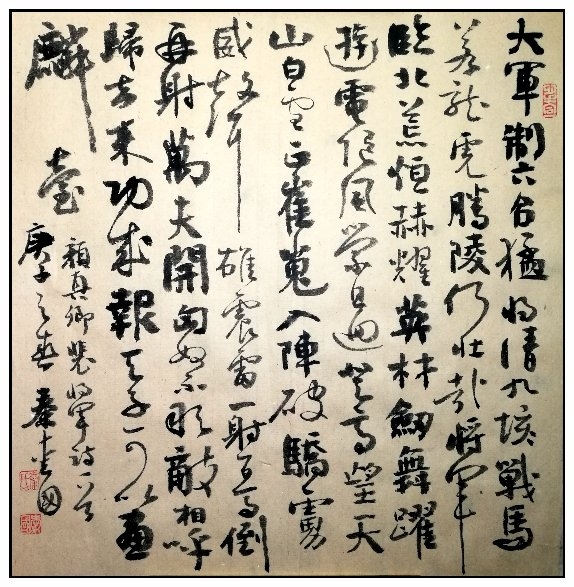 大軍制六合猛將清九垓戰馬
若龍虎騰陵何壯哉將軍
臨北荒恒赫耀英材劒舞躍
遊電随風縈且迴登高望天
山白雲正崔嵬入陣破驕虜
威聲雄震雷一射百馬倒
再射萬夫開匈奴不敢敵相呼
歸去來功成報天子可以畫
麟臺
顏真卿裴將軍詩
庚子之春秦國